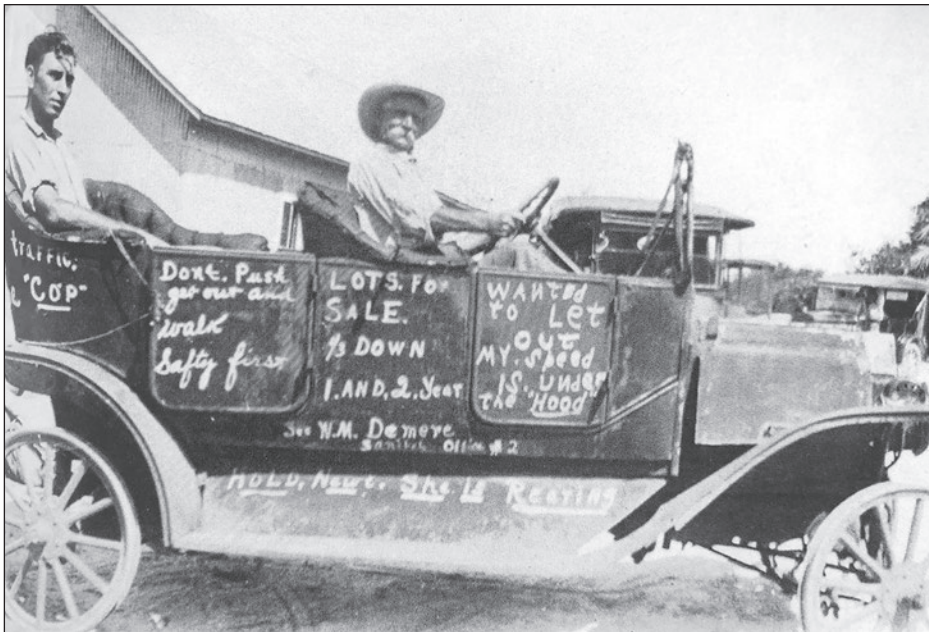 traffic.
"COP"
Dont. Push
get out and
walk
Safty first
LOTS. FO
SALE.
⅓ DOWN
1. AND, 2. Year
See W.M. Demere
Office #2
WANTed
to Let
out
MY. Speed
IS. UNDER
the "Hood"
HOLD, Newt. She Is Rearing